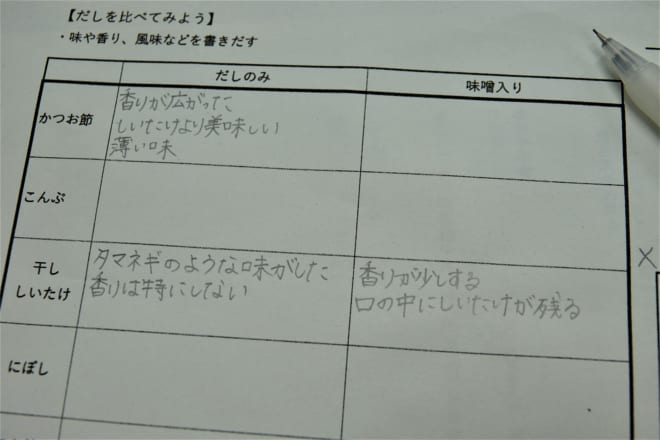 【だしを比べてみよう】
・味や香り、風味などを書きだす
だしのみ
味噌入り
かつお節
香りが広がった
しいたけより美味しい
薄い味
こんぶ
干し
しいたけ
タマネギのような味がした
香りは特にしない
香りが少しする
口の中にしいたけが残る
にぼし